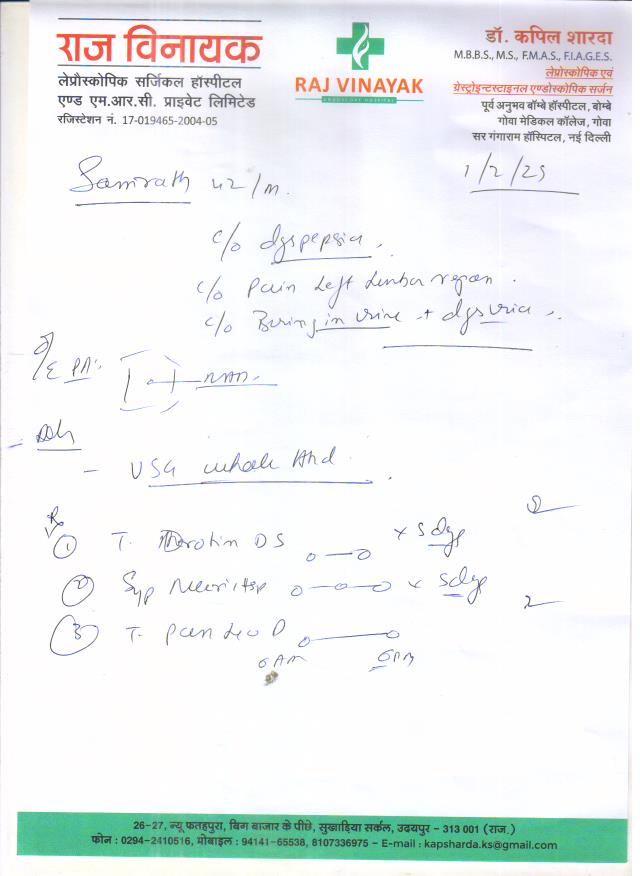 राज विनायक
लेप्रौस्कोपिक सर्जिकल हॉस्पीटल
एण्ड एम.आर.सी. प्राइवेट लिमिटेड
रजिस्टेशन नं. 17-019465-2004-05
RAJ VINAYAK
डॉ. कपिल शारदा
M.B.B.S., M.S., F.M.A.S., F.I.A.G.E.S.
लेप्रोस्कोपिक एवं
ग्रेस्ट्रोइन्टस्टाइनल एण्डोस्कोपिक सर्जन
पूर्व अनुभव बॉम्बे हॉस्पीटल, बोम्बे
गोवा मेडिकल कॉलेज, गोवा
सर गंगाराम हॉस्पिटल, नई दिल्ली
1/2/25
Samrath 42/m.
c/o dyspepsia.
c/o Pain Left Lumbar region.
c/o Burning in urine + dysuria.
O/E PA: NAD.
Adv
- USG whole Abd.
Rx
① T. DS x 5 days
② Syp x 5 days
③ T. Pan D
6 AM 6 PM
26-27, न्यू फतहपुरा, बिग बाजार के पीछे, सुखाड़िया सर्कल, उदयपुर - 313 001 (राज.)
फोन : 0294-2410516, मोबाईल : 94141-65538, 8107336975 - E-mail : kapsharda.ks@gmail.com